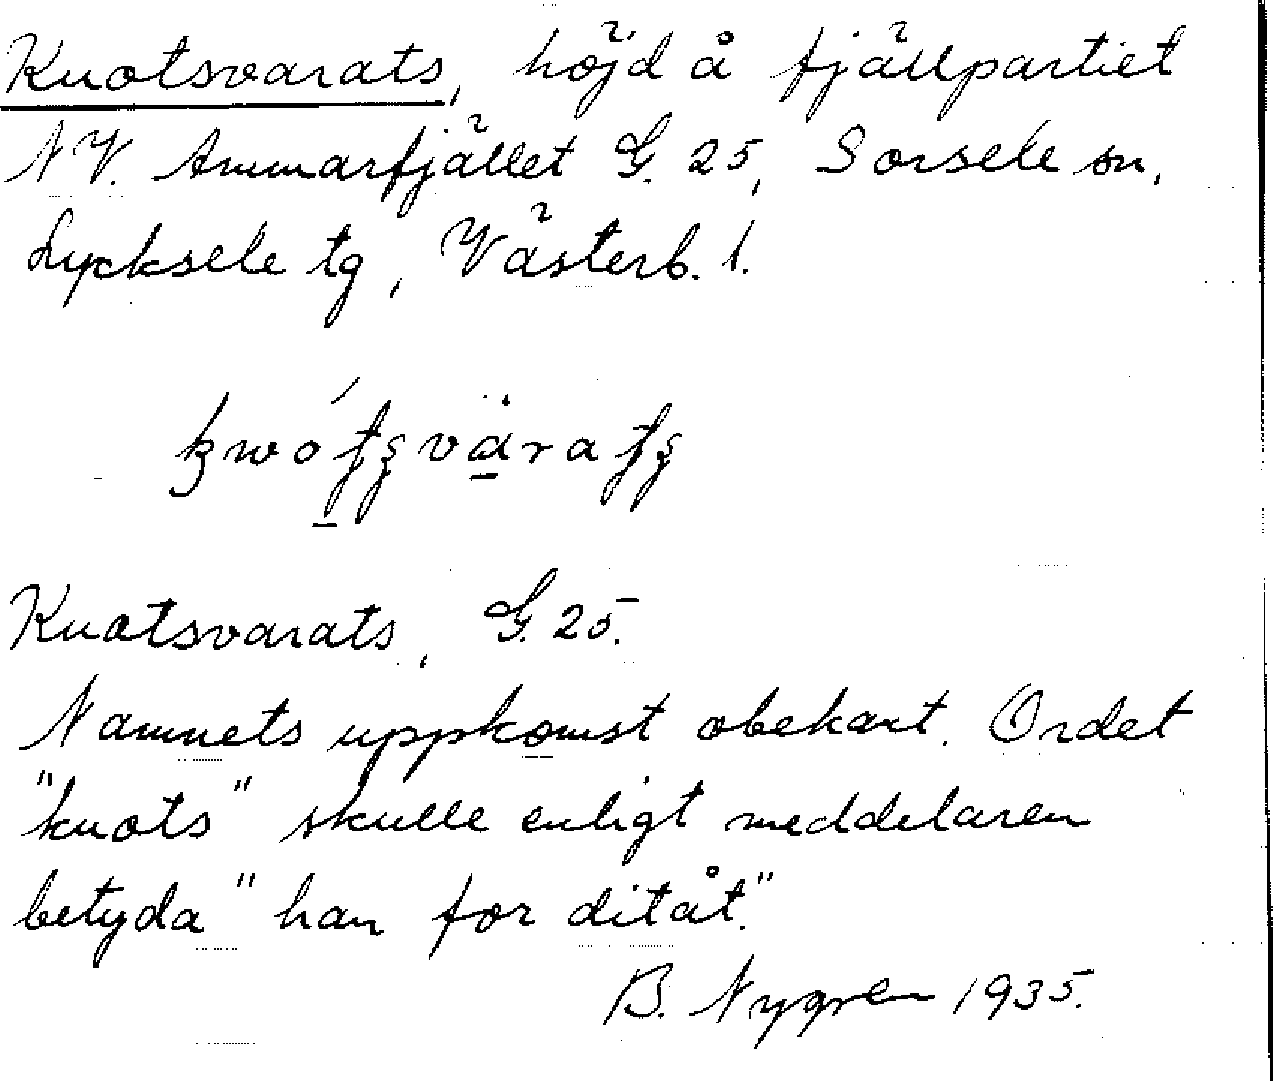 Kuotsvarats, höjd å fjällpartiet
NV. Ammarfjället G. 25, Sorsele sn,
Lycksele tg, Västerb. l.
Kuotsvarats, G. 25.
Namnets uppkomst obekant. Ordet
"kuots" skulle enligt meddelaren
betyda "han for ditåt."
B. Nygren 1935.